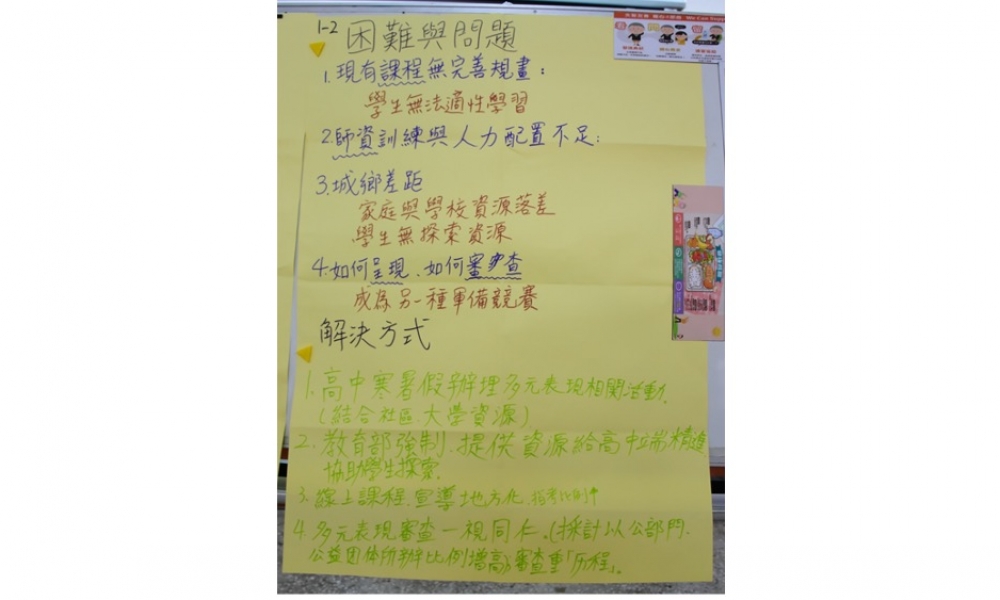 1-2 困難與問題
1. 現有課程無完善規畫:
學生無法適性學習
2. 師資訓練與人力配置不足:
3. 城鄉差距
家庭與學校資源落差
學生無探索資源
4. 如何呈現、如何審查
成為另一種軍備競賽
解決方式
1. 高中寒暑假辦理多元表現相關活動.
(結合社區.大學資源)
2. 教育部強制.提供資源給高中端精進
協助學生探索.
3. 線上課程.宣導地方化.指考比例↑
4. 多元表現審查一視同仁.(採計以公部門.
公益團體所辦比例增高)審查重「历程」。